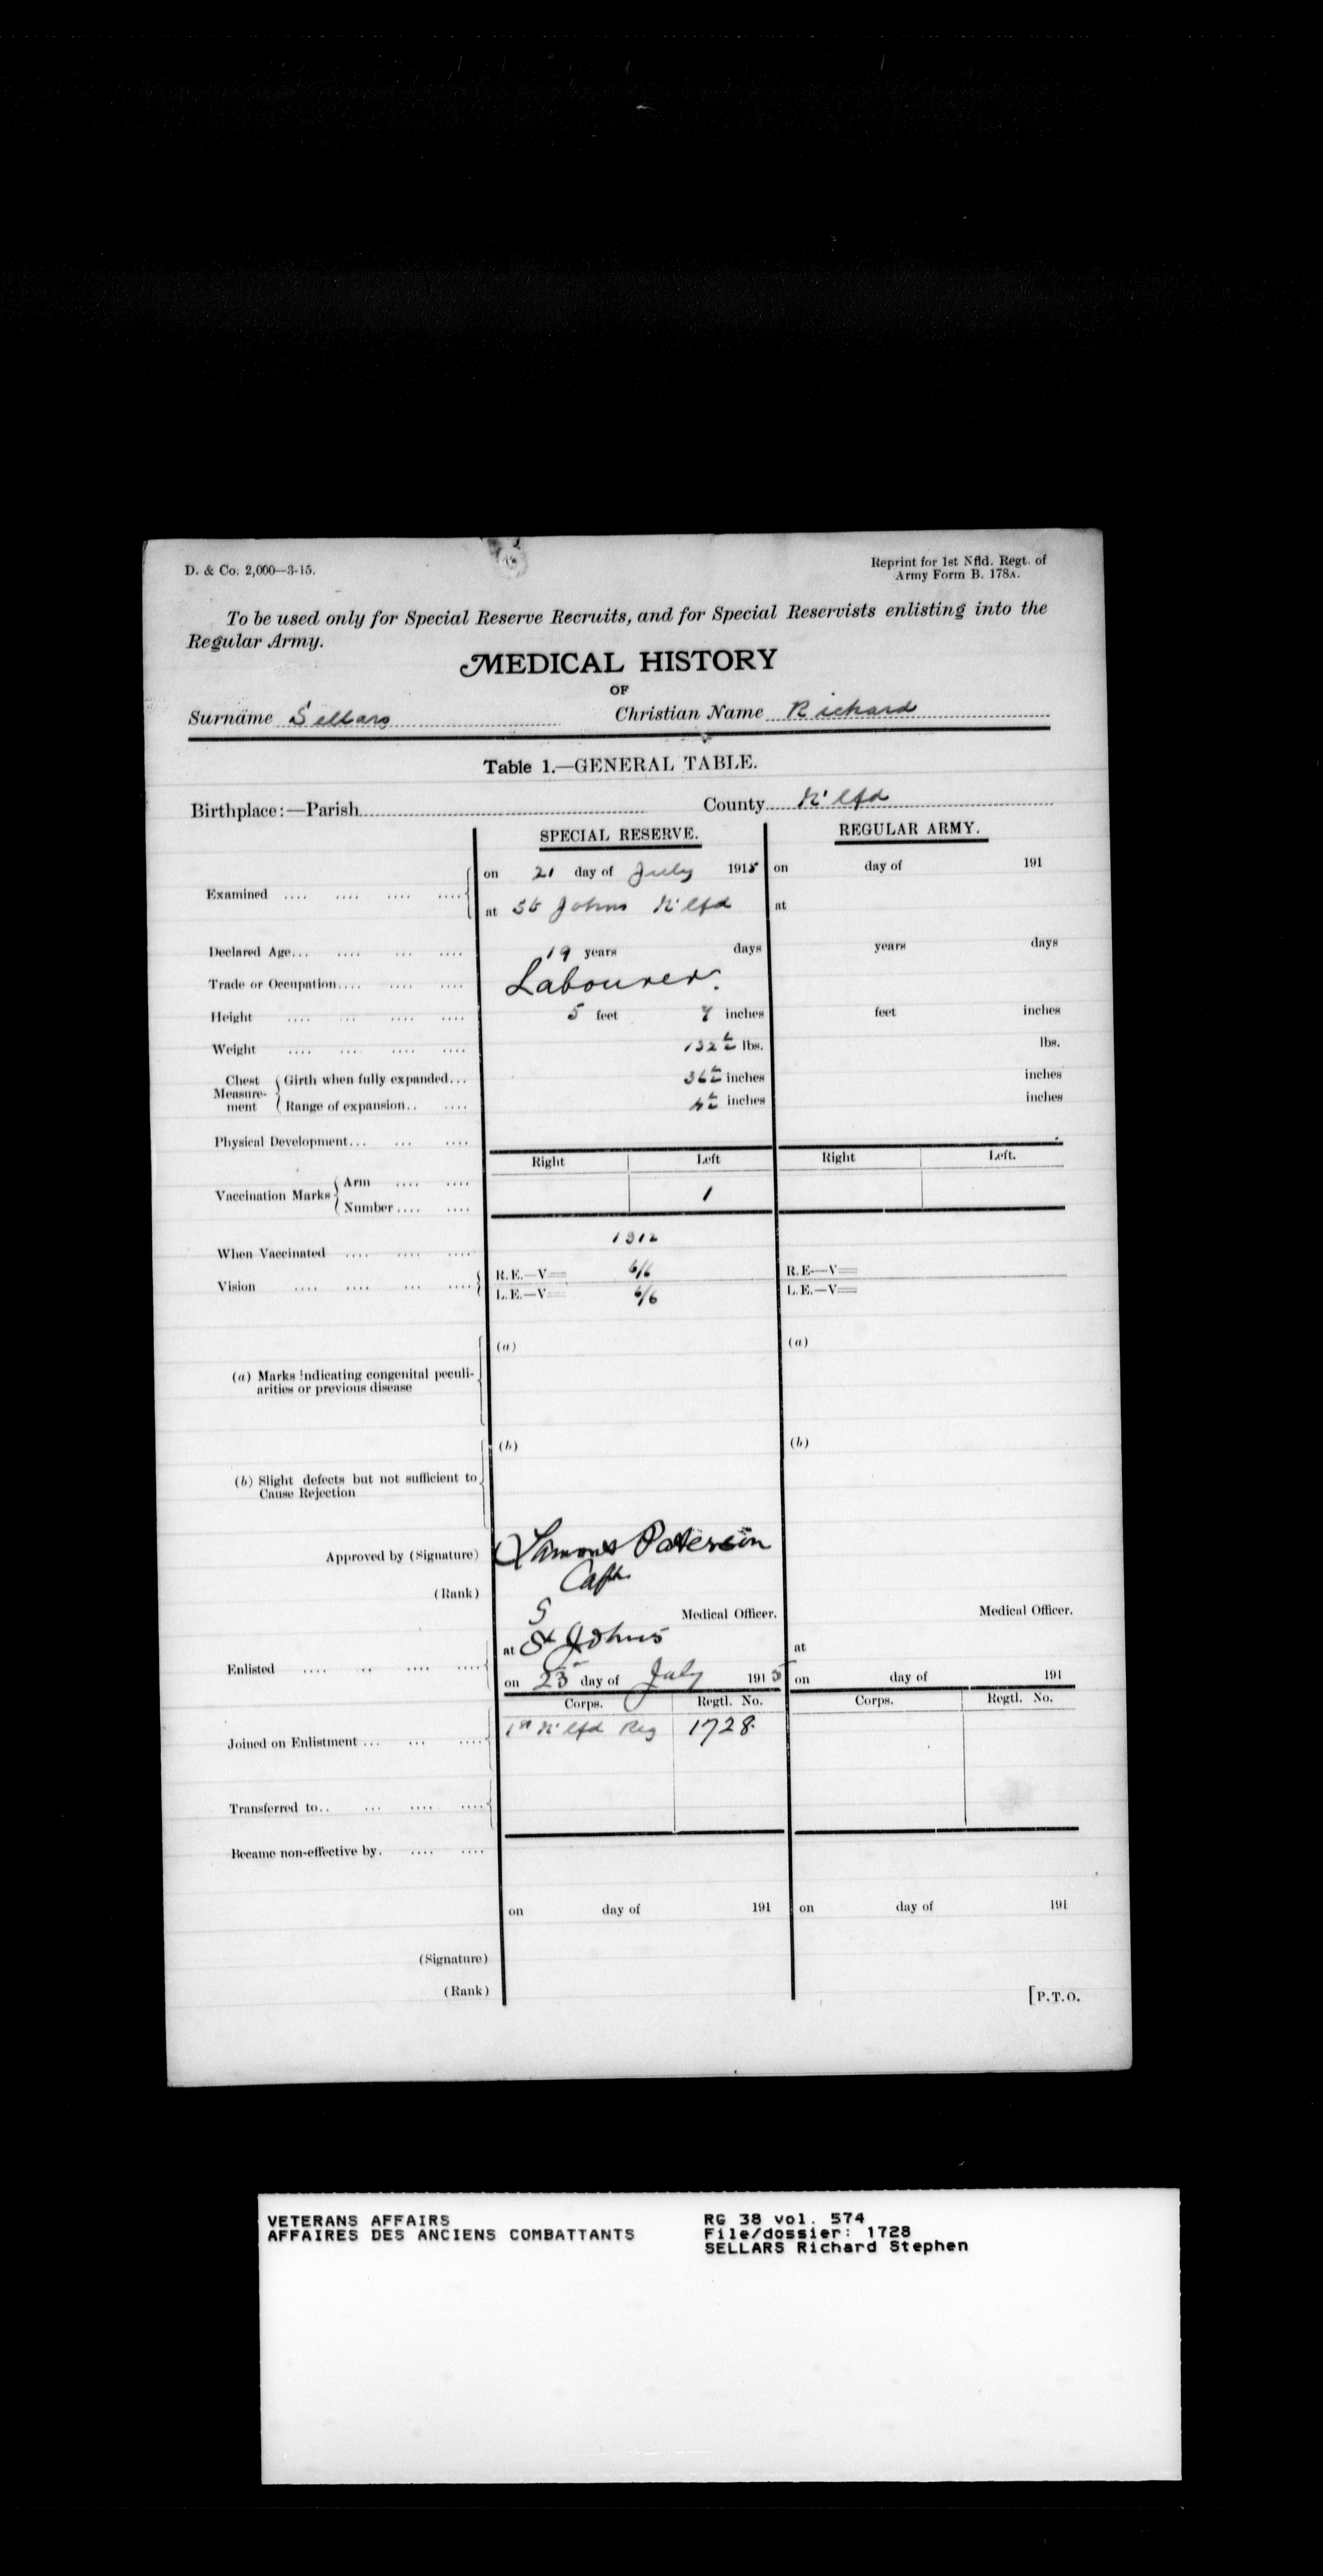 D. & Co. 2,000—3-15.
Reprint for 1st Nfld. Regt. of
Army Form B. 178A.
To be used only for Special Reserve Recruits, and for Special Reservists enlisting into the
Regular Army.
MEDICAL HISTORY
OF
Surname Sellars Christian Name Richard
Table 1.—GENERAL TABLE.
Birthplace:—Parish County N'lfd
SPECIAL RESERVE. REGULAR ARMY.
Examined .... .... .... ....
on 21 day of July 1915 on day of 191
at St Johns N'lfd at
Declared Age... .... ... .... 19 years days years days
Trade or Occupation.... .... .... Labourer.
Height .... ... .... .... 5 feet 7 inches feet inches
Weight .... .... .... .... 132½ lbs. lbs.
Chest Measurement
Girth when fully expanded... 36½ inches inches
Range of expansion.. .... 4½ inches inches
Physical Development... ... ....
Right Left Right Left.
Vaccination Marks
Arm .... ....
Number .... .... 1
When Vaccinated .... .... .... 1912
Vision .... .... ... ....
R.E.—V= 6/6 R.E—V=
L.E.—V= 6/6 L.E.—V=
(a) (a)
(a) Marks indicating congenital peculi-
arities or previous disease
(b) (b)
(b) Slight defects but not sufficient to
Cause Rejection
Approved by (Signature) Paterson
(Rank) Capt.
Medical Officer. Medical Officer.
Enlisted .... .. .... ....
at St Johns at
on 23 day of July 1915 on day of 191
Corps. Regtl. No. Corps. Regtl. No.
Joined on Enlistment ... ... .... 1st N'lfd Reg 1728.
Transferred to.. ... .... ....
Became non-effective by. .... ....
on day of 191 on day of 191
(Signature)
(Rank)
[P.T.O.
VETERANS AFFAIRS RG 38 vol. 574
AFFAIRES DES ANCIENS COMBATTANTS File/dossier: 1728
SELLARS Richard Stephen